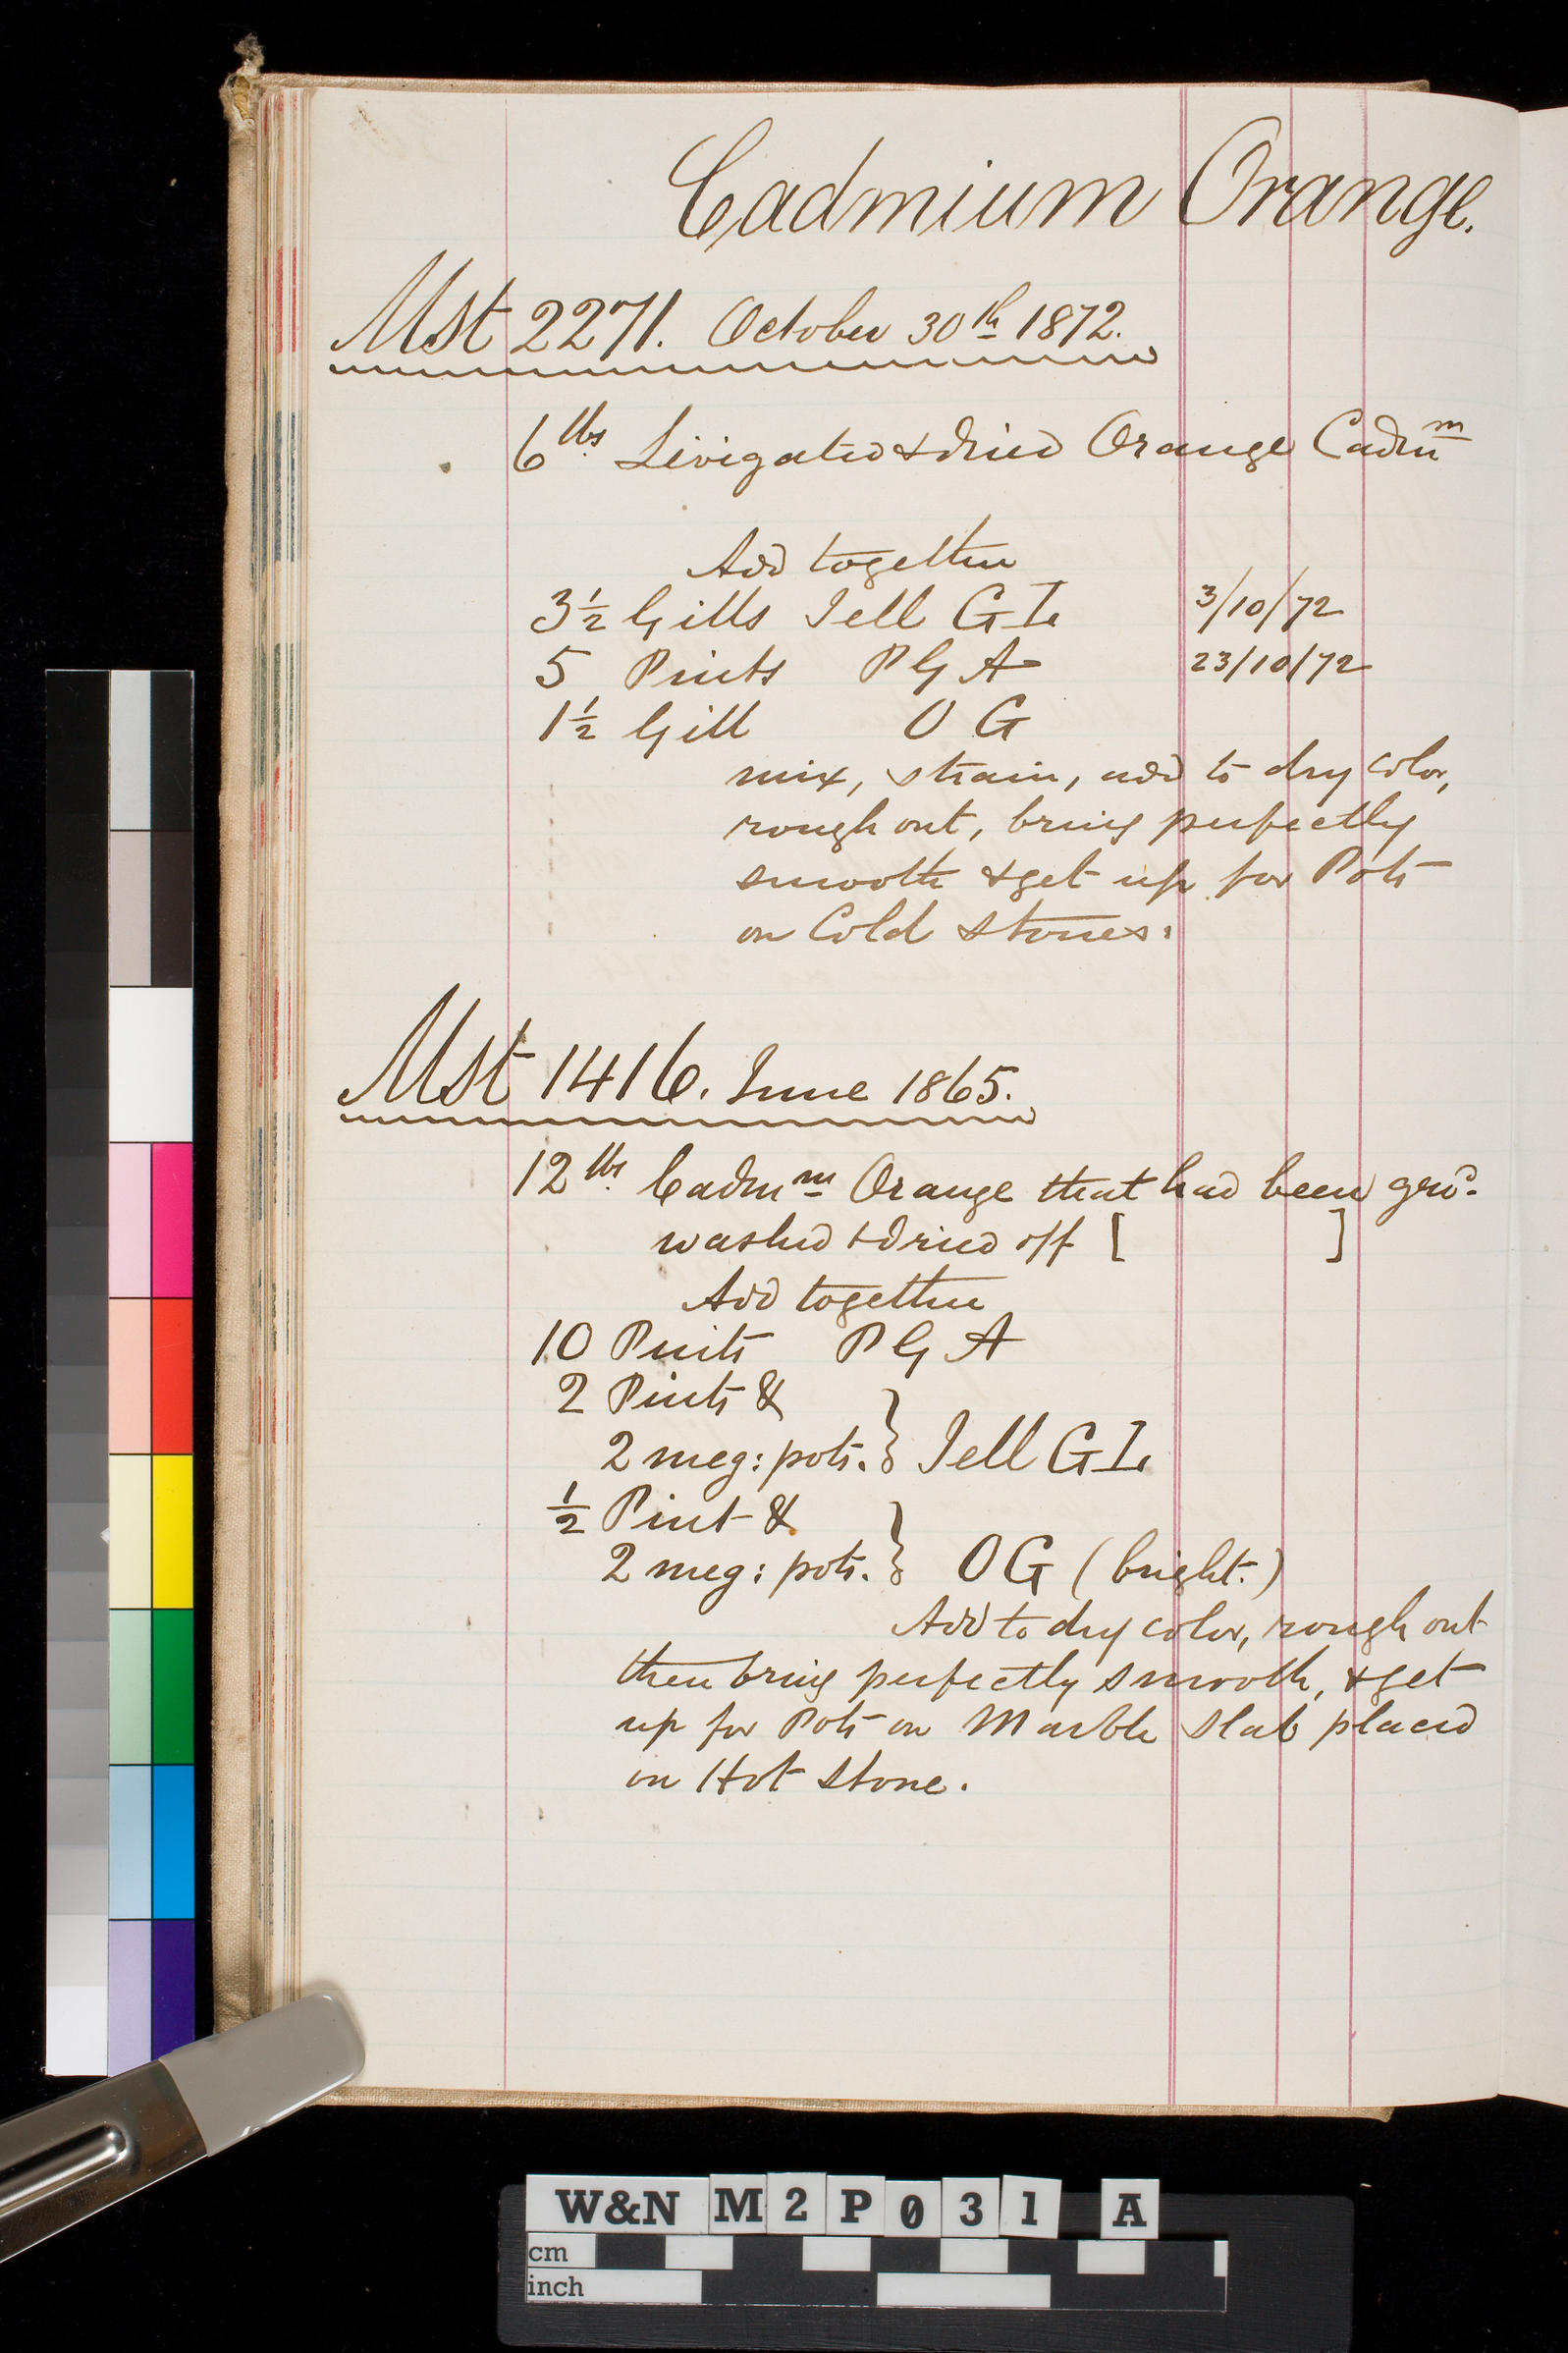 Cadmium Orange.
Mst 2271. October 30th 1872.
6 lbs. Livigated & dried Orange Cadm m
Add together
3½ Gills Jell G I 3/10/72
5 Pints P G A 23/10/72
1½ Gill O G
mix, strain, add to dry color,
rough out, bring perfectly
smooth & get up for Pots
on Cold stones.
Mst 1416. June 1865.
12 lbs. Cadm m Orange that had been grd.
washed & dried off [ ]
Add together
10 Pints P G A
2 Pints &
2 meg: pots. } Jell G I
½ Pint &
2 meg: pots. } O G (bright.)
Add to dry color, rough out
then bring perfectly smooth, & get
up for Pots on Marble Slab placed
on Hot stone.
W&N M2P031 A
cm
inch